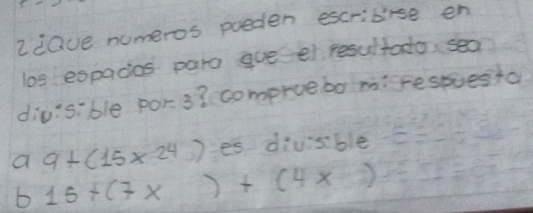 2 ¿Que numeros pueden escribirse en
los espacios para que el resultado sea
divisible por 3? compruebo mi respuesta
a 9+(15x24) es divisible
b 15+(7x  )+(4x  )